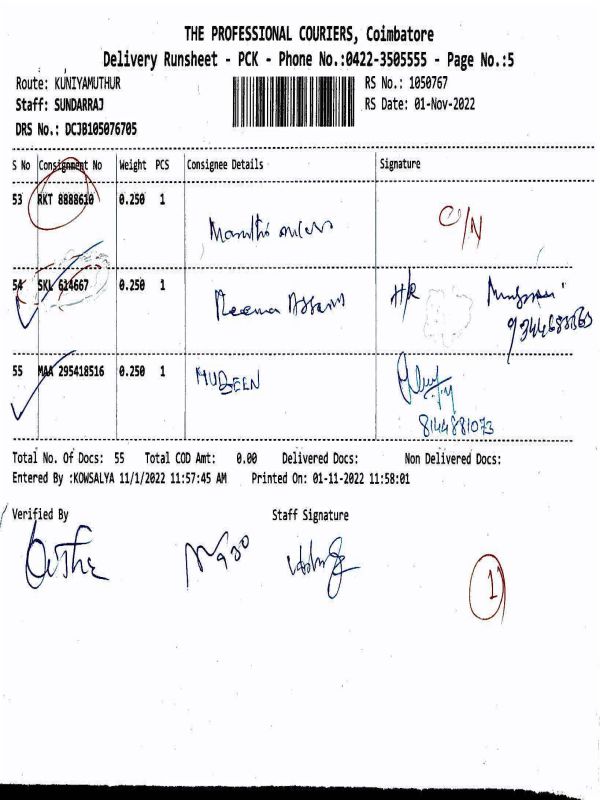 THE PROFESSIONAL COURIERS, Coimbatore
Delivery Runsheet - PCK - Phone No.:0422-3505555 - Page No.:5
Route: KUNIYAMUTHUR
RS No.: 1050767
Staff: SUNDARRAJ
RS Date: 01-Nov-2022
DRS No.: DCJB105076705
S No Consignment No Weight PCS Consignee Details Signature
53 RKT 8888610 0.250 1
54 SKL 614667 0.250 1 H/R
55 MAA 295418516 0.250 1 MUBEEN
8144881073
Total No. Of Docs: 55 Total COD Amt: 0.00 Delivered Docs: Non Delivered Docs:
Entered By :KOWSALYA 11/1/2022 11:57:45 AM Printed On: 01-11-2022 11:58:01
Verified By Staff Signature
1